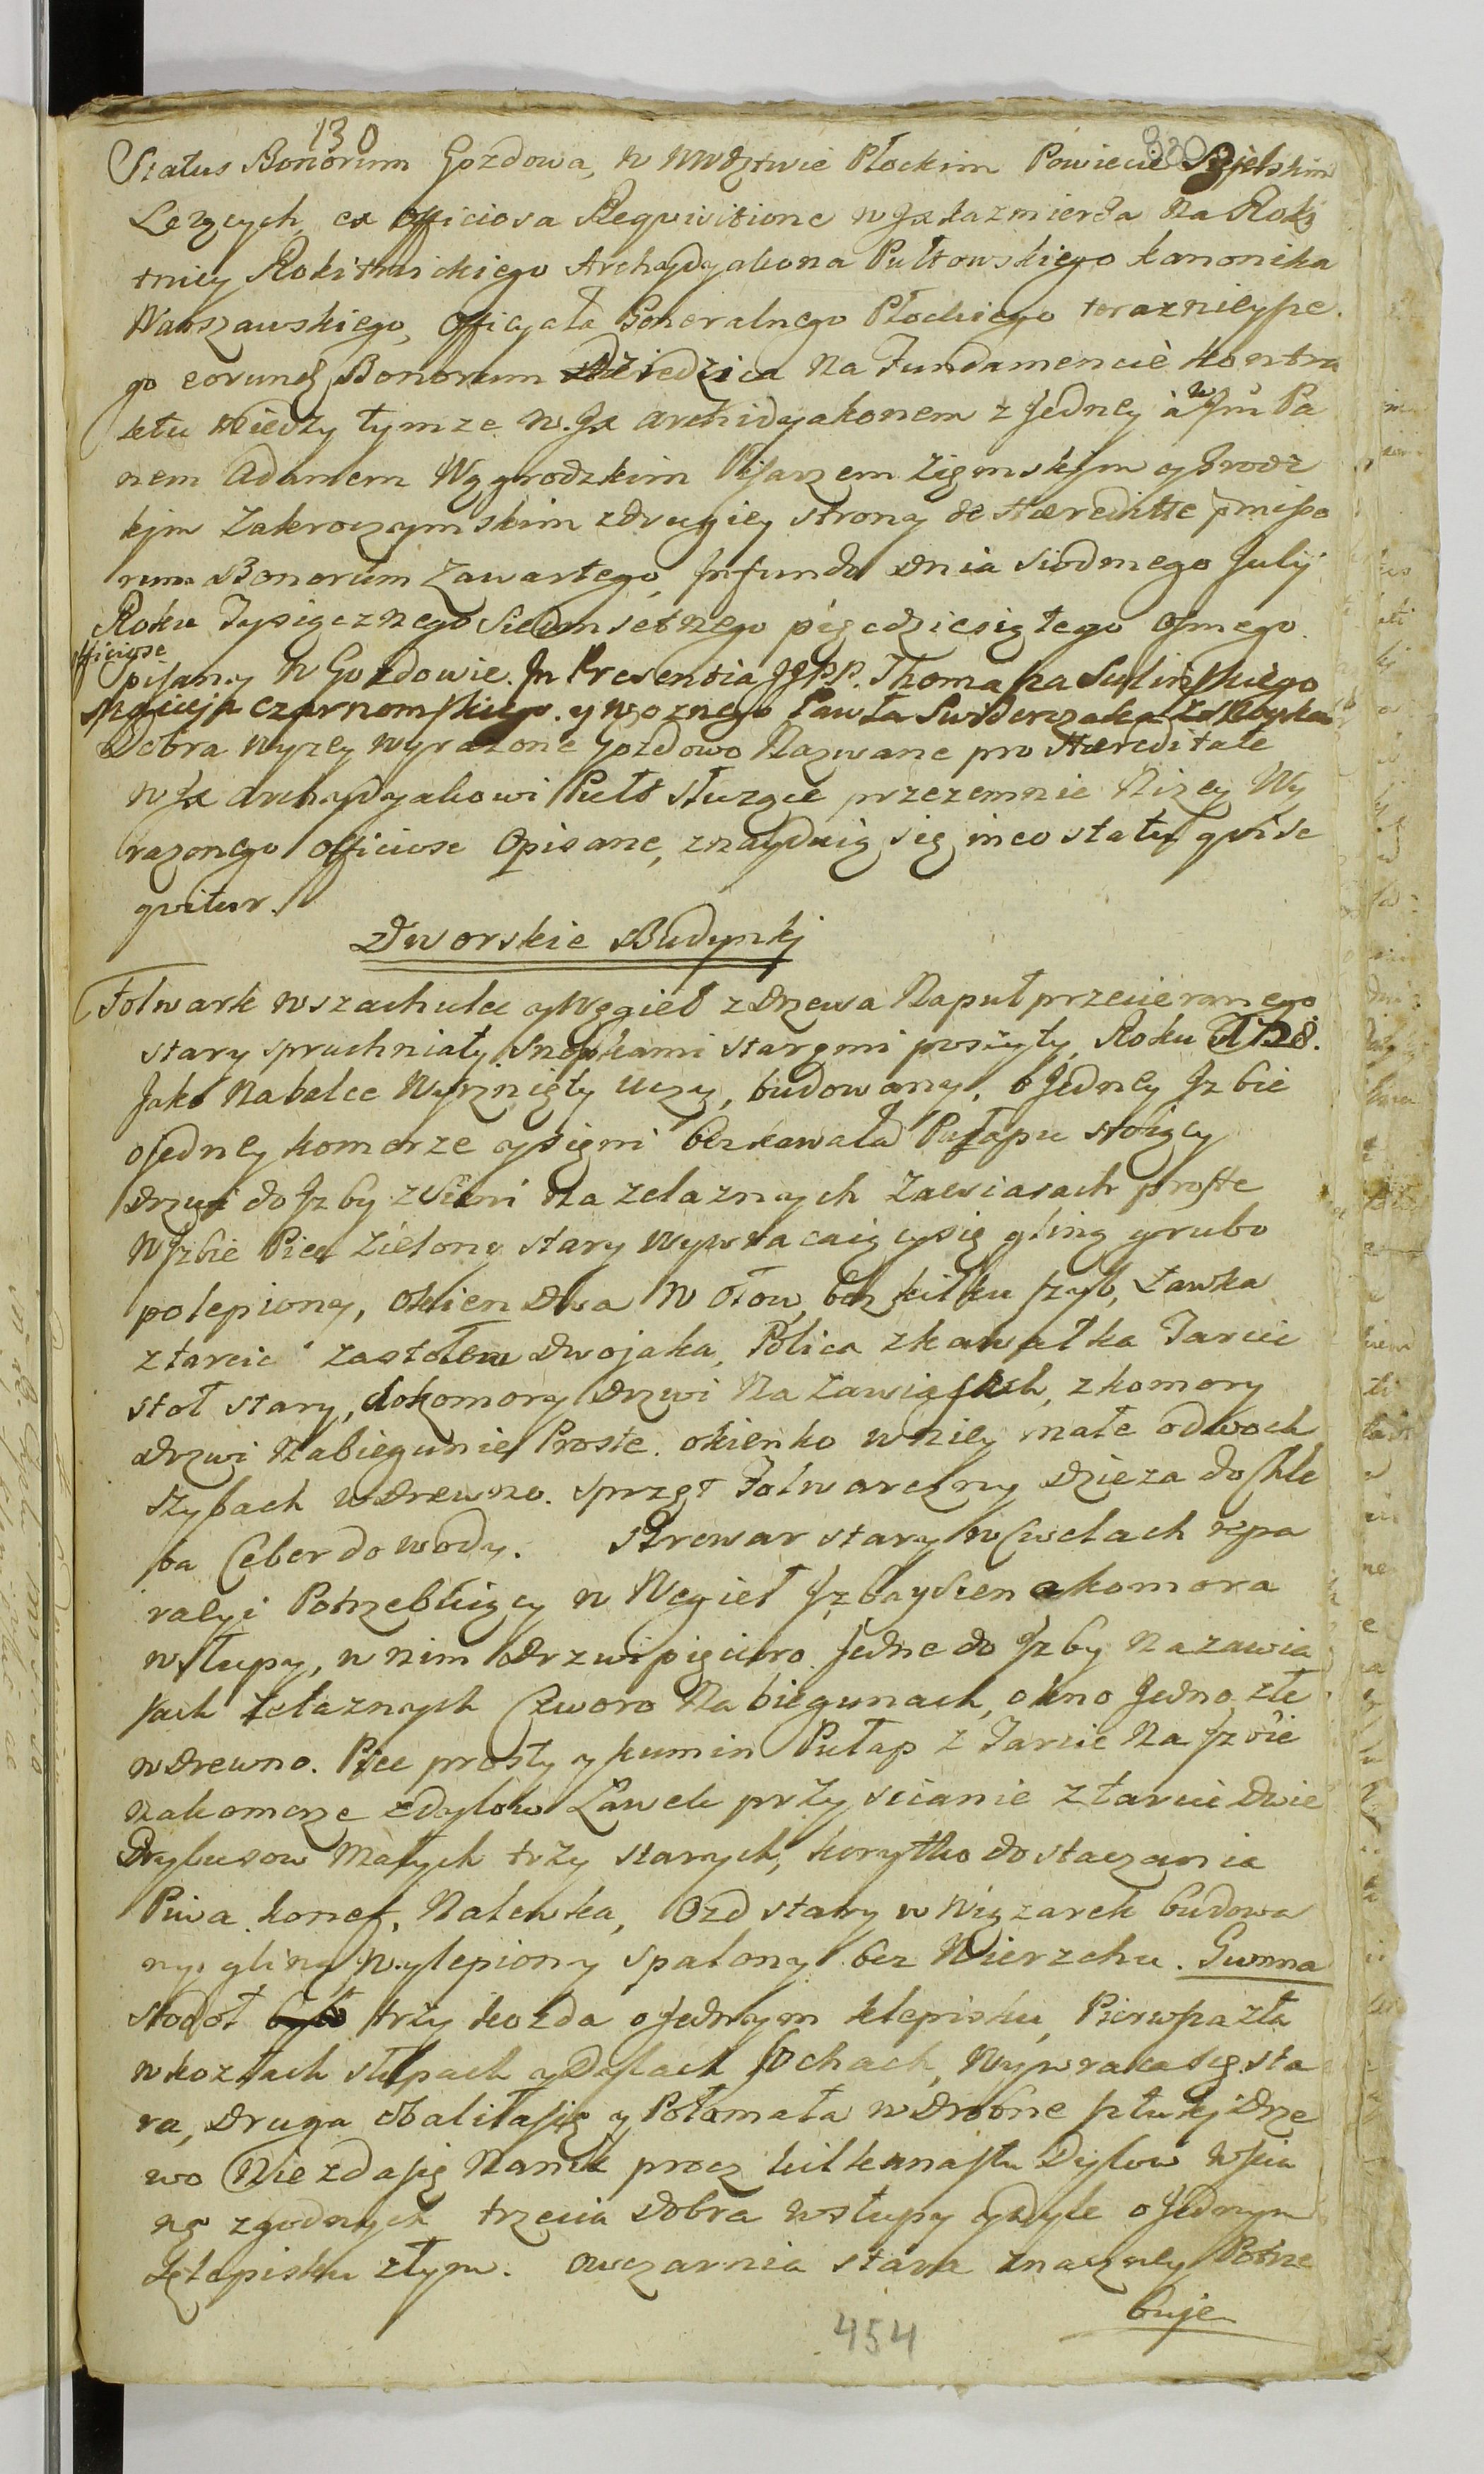 130
Status Bonorum Gozdowa, w Wwdztwie Płockim Powiecie
Lezących, ex officiosa Reqvisitione w Jx Kazmierza na Roki
tnicy Rokitnickiego Archydyakona Pułtowskiego kanonika
Warszawskiego, Officyała Generalnego Płockiego teraznieysze
go eorund Bonorum Dziedzica na Fundamencie kontra
ktu Między tymze W. Jx archidyakonem z Jedney a W Jm Pa
nem Adamem Wygrodzkim Pisarzem Ziemskjm y Grodz
kjm Zakroczymskim z drugiey strony de Hæreditte pmisso
rum Bonorum Zawartego, in fundo Dnia Siodmego Julij
Roku Tysiącznego Siedmsetnego pięcdziesiątego osmego
fficiose
pisany w Gozdowie. In Presentia JJPP. Thomasza Suliński ego
Macieja Czarnomskiego. y woznego Pawła Swiderczaka
Dobra wyzey wyrazone Gozdowo Nazwane pro Hæreditate
w Jx archydyakowi Pułt służące przezemnie Nizey Wy
razonego officiose Opisane, znayduią się in eo statu qvi se
qvitur.
Dworskie Budynkj
Folwark w szachulec y Węgieł z Drzewa Naput przecieranego
stary spruchniały, Snopkami staremi poszyty, Roku 1728.
Jako Nabelce Wyrznięty uczy, budowany, o Jedney Jzbie
o Jedney komorze y sięni bez kawała Pułapu stoiący
Drzwi do Jzby z Sieni na zelaznych Zawiasach proste
w Jzbie Piec Zielony stary wywracaiący się gliną grubo
polepiony, Okien Dwa w ołow, bez kilku szyb, Ławka
z tarcic za stołem Dwojaka, Polica z kawałka Tarcic
stoł stary, do komory Drzwi na Zawiasach, z komory
Drzwi na biegunie Proste. okienko w niey małe o dwoch
szybach w Drewno. sprzęt Folwarczny Dzieza do Chle
ba Ceber do wody. Browar stary w Cwelach repa
racyi Potrzebuiący w Węgieł Jzba y Sien a komora
w słupy, w nim Drzwi pięcioro Jedne do Jzby na zawia
sach Zelaznych Czworo Na biegunach, okno Jedno złe
w Drewno. Piec prosty y kumin Pułap z Tarcic na Jzbie
na komorze z Dylow Ławek przy scianie z tarcic Dwie
Drybusow Małych trzy starych, korytko do staczania
Piwa konef, Nalewka, Ozd stary w Wiązarek budowa
ny, gliną wylepiony spalony bez Wierzchu. Gumna
stodoł trzy kozda o Jednym klepisku, Pierwsza zła
w kozłach słupach y Dylach sochach, Wywraca się sta
ra, Druga obaliła się y Połomała w Drobne sztukj Drze
wo Nie zda się na nic procz kilkunastu Dylow w scia
nę zgodnych trzecia Dobra w słupy y Dyle o Jednym
klepisku złym. owczarnia stara znaczney Potrze
buje
454